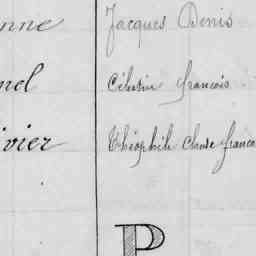 nne Jacques Denis
nel Célestin françois
vier Théophile franco
P